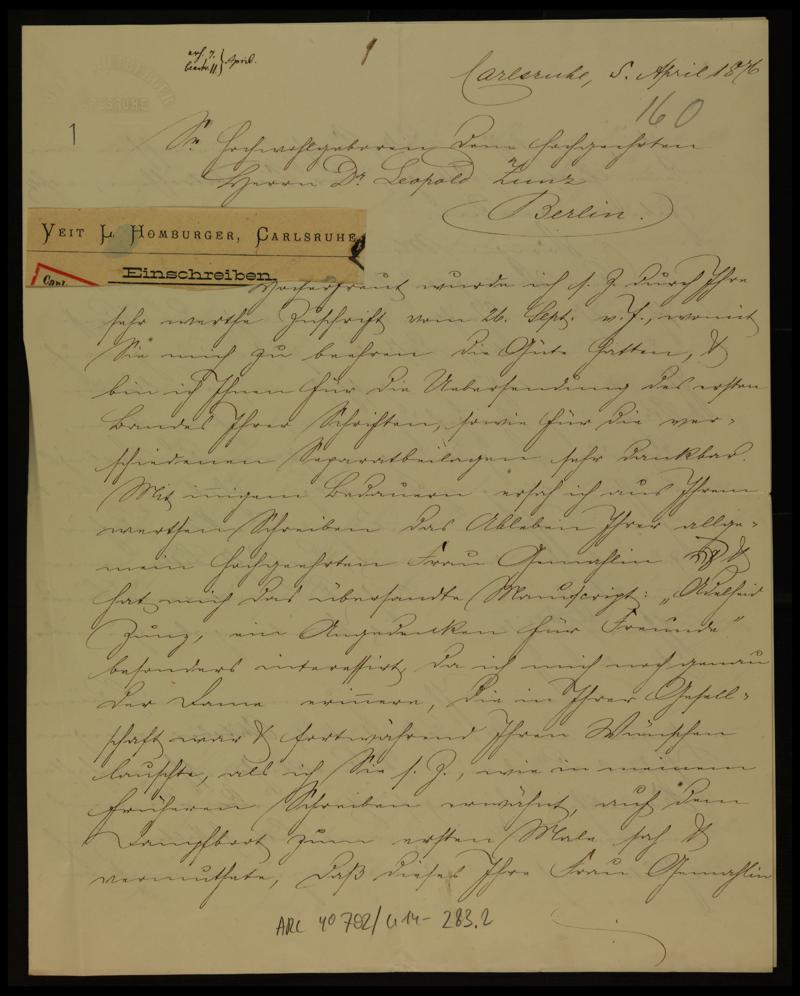 erh. 7. } April.
beantw. 11.
1
Carlsruhe, 5. April 1876
160
1
Sr. Hochwohlgeboren dem hochgeehrten
Herrn Dr. Leopold Zunz
Berlin.
VEIT L. HOMBURGER, CARLSRUHE
Einschreiben
Hocherfreut wurde ich s. Z. durch Ihre
sehr werthe Zuschrift vom 26. Sept. v. J., womit
Sie mich zu beehren die Güte hatten, &
bin ich Ihnen für die Uebersendung des ersten
Bandes Ihrer Schriften, sowie für die ver-
schiedenen Separatbeilagen sehr dankbar.
Mit innigem Bedauern ersah ich aus Ihrem
werthen Schreiben das Ableben Ihrer allge-
mein hochgeehrten Frau Gemahlin &
hat mich das übersandte Manuscript: „Adelheid
Zunz, ein Angedenken für Freunde"
besonders interessirt, da ich mich noch genau
der Dame erinnere, die in Ihrer Gesell-
schaft war & fortwährend Ihren Wünschen
lauschte, als ich Sie s. Z., wie in meinem
früheren Schreiben erwähnt, auf dem
Dampfboot zum ersten Male sah &
vermuthete, daß dieses Ihre Frau Gemahlin
ARC 4º 792/G14-283.2